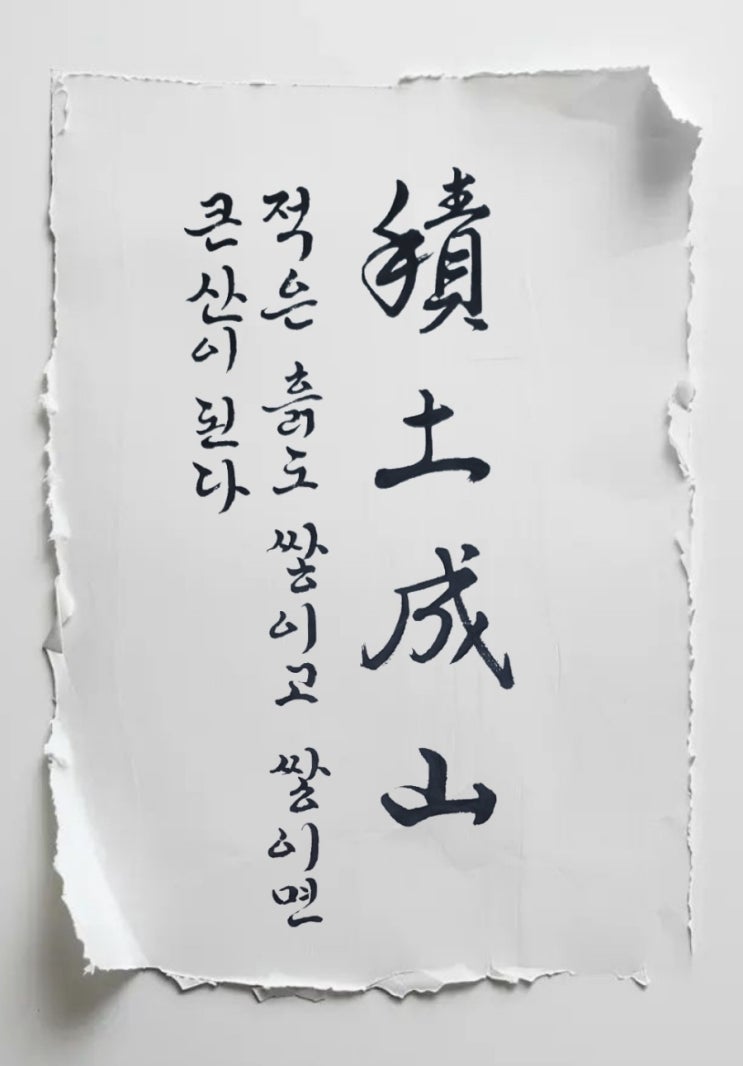 積土成山
적은 흙도 쌓이고 쌓이면
큰 산이 된다